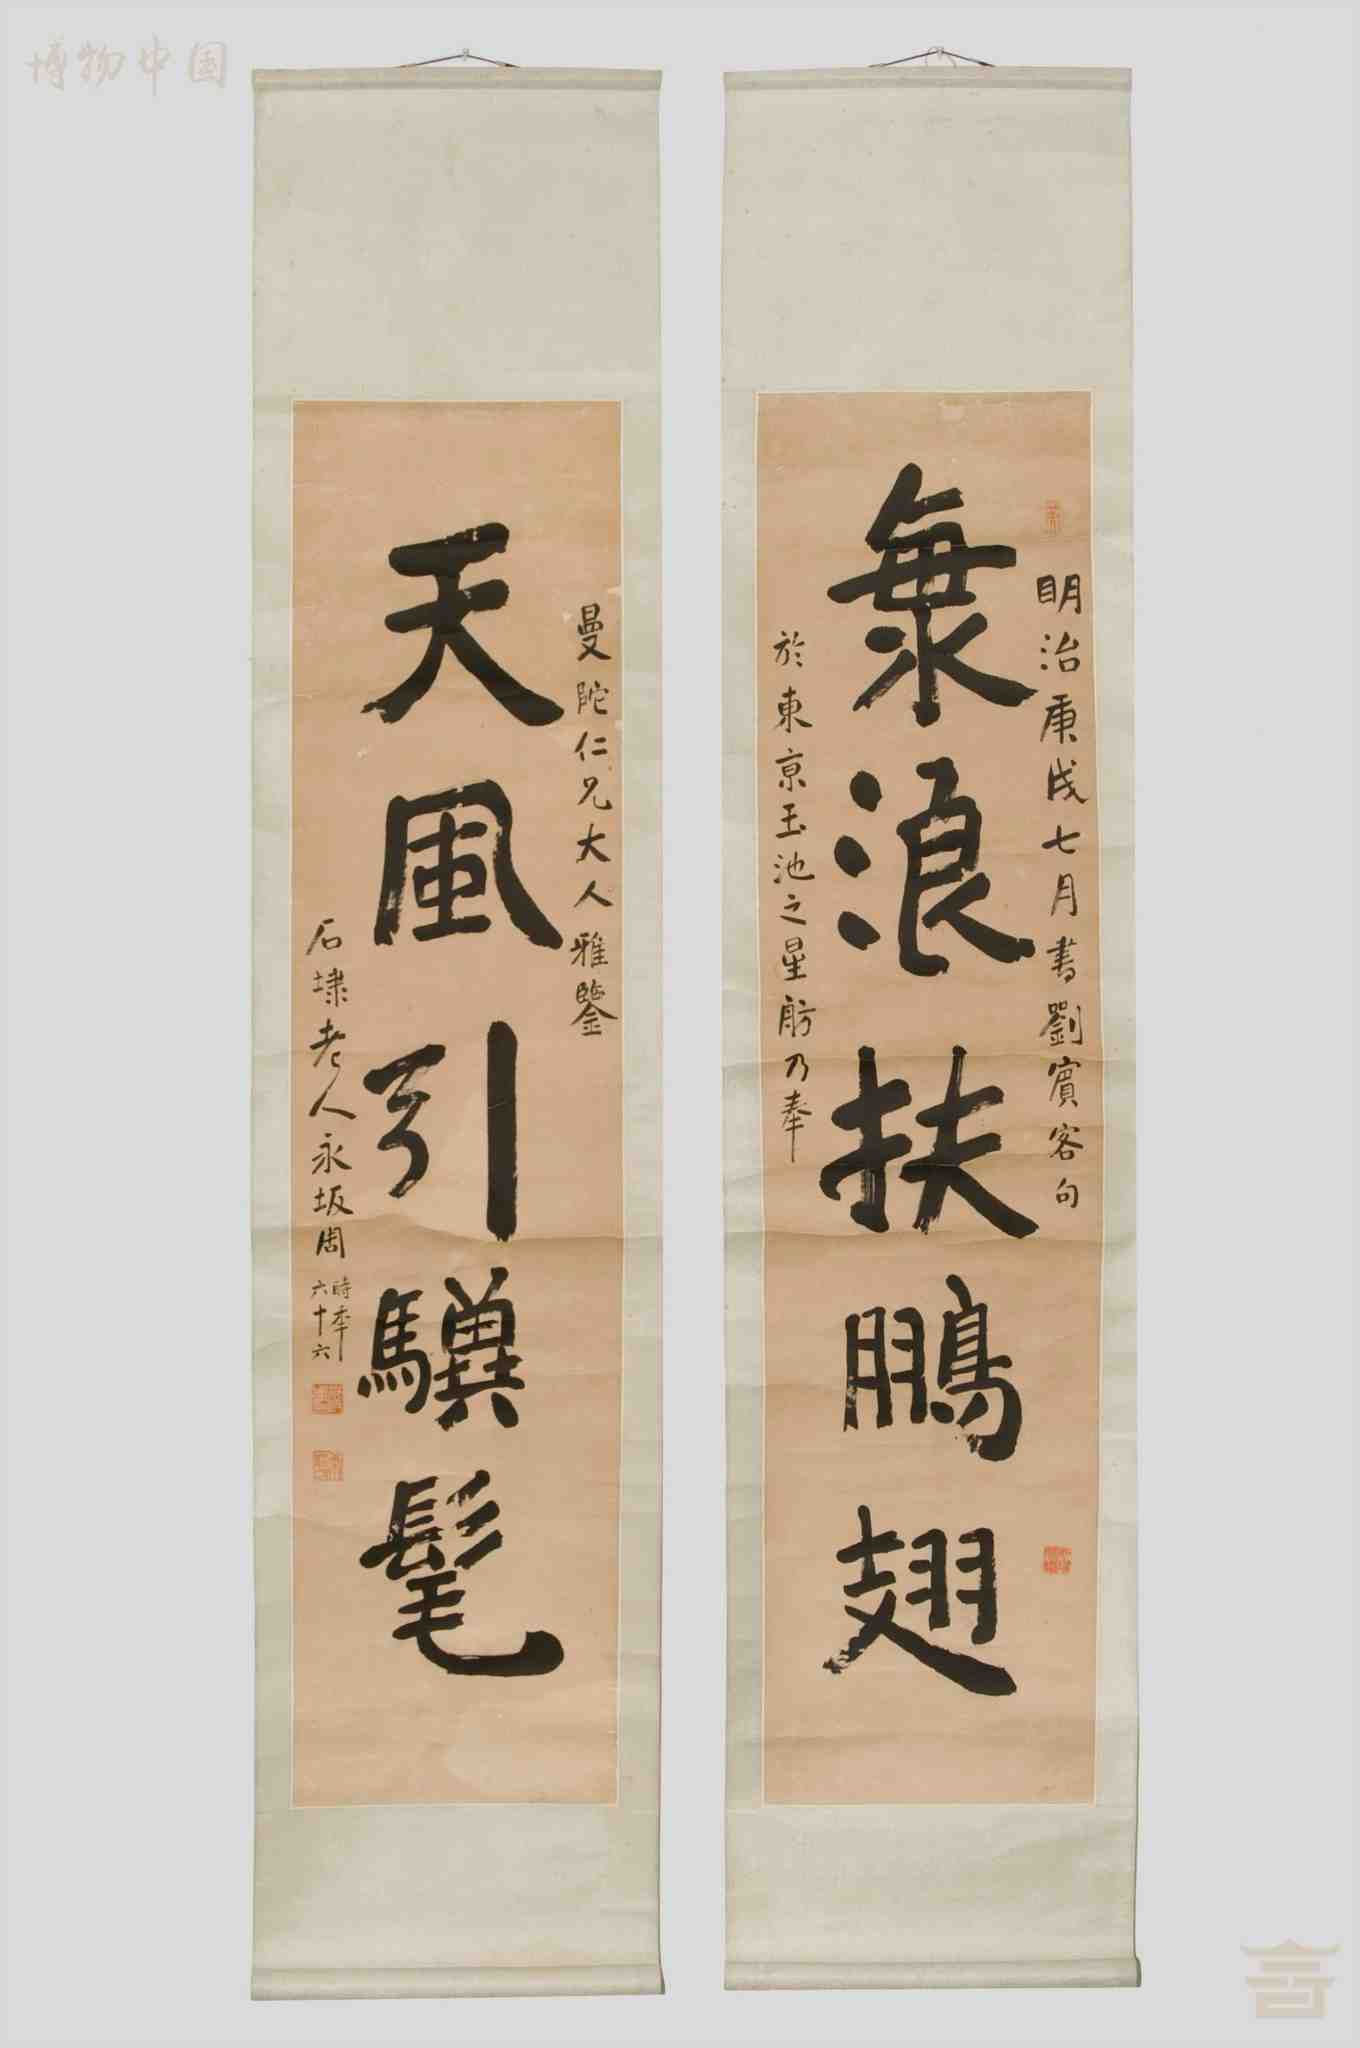 博物中国
明治庚戌七月書劉賓客句
海浪扶鵬翅
於東亰玉池之星舫乃奉
曼陀仁兄大人雅鑒
天風引驥髦
石埭老人永坂周時年六十六